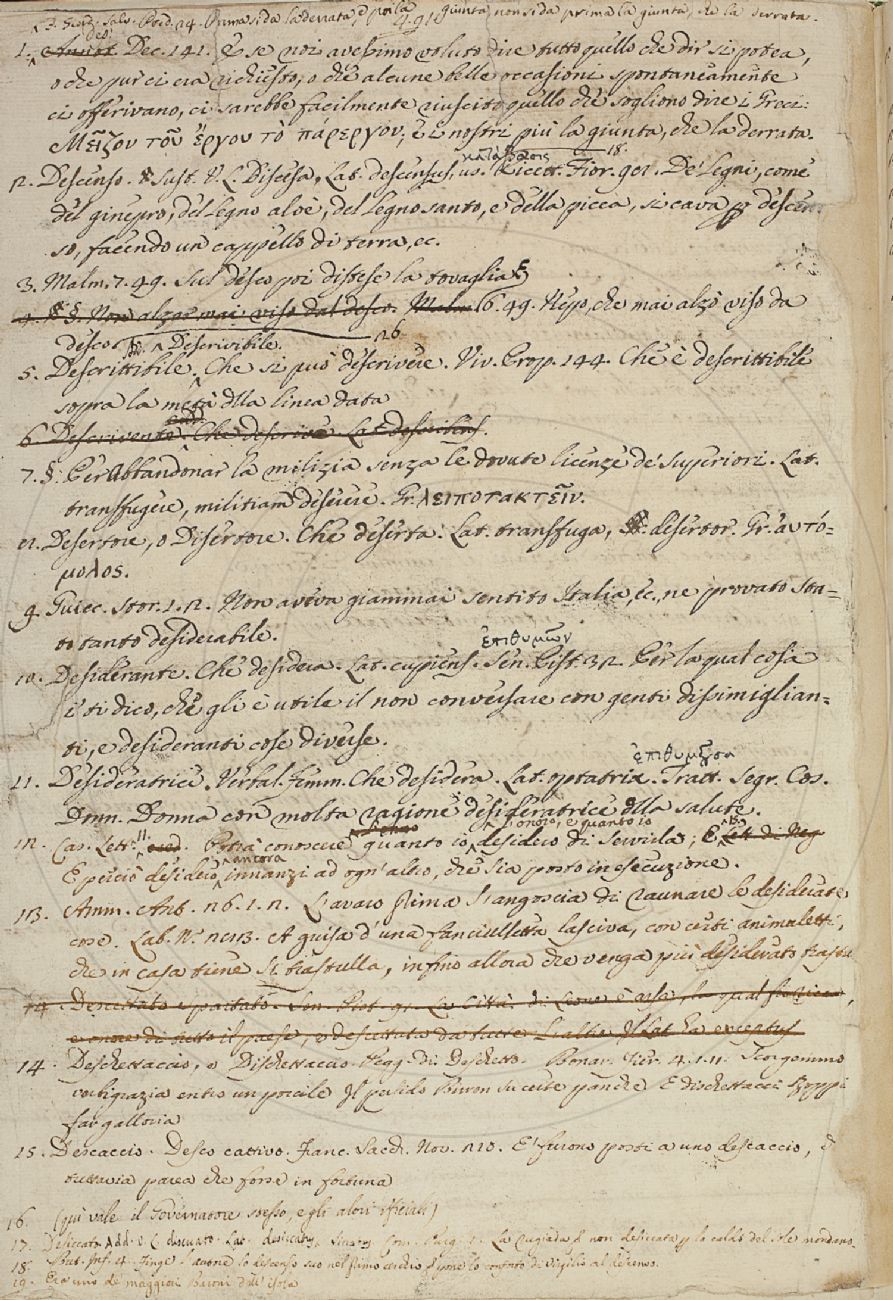 Prima si da la derrata, e poi la giunta, non si da prima la giunta, che la derrata.
1. Dec. 141. E se noi avessimo voluto dire tutto quello che dir si potea,
o che pur ci era richiesto, o che alcune belle occasioni spontaneamente
ci offerivano, ci sarebbe facilmente riuscito quello che sogliono dire i Greci:
Μεῖζον τοῦ ἔργου τὸ πάρεργον, e i nostri più la giunta, che la derrata.
κατάβασις 18.
2. Descenso. Sust. V. L. Discesa, Lat. descensus, us. Ricett. Fior. 92. De' Legni, come
del ginepro, del Legno aloè, del Legno santo, e della picea, si cava per descen-
so, facendo un cappello di terra, ec.
3. Malm. 7. 49. Sul desco poi distese la tovaglia
4. §. Non alzar mai viso dal desco. Malm. 6. 49. Nepo, che mai alzò viso da
desco. 26
Descrivibile.
5. Descrittibile. Che si può descrivere. Viv. Prop. 144. Che è descrittibile
sopra la metà della linea data
6. Descrivente. Che descrive Lat. describens.
7. §. Per Abbandonar la milizia senza le dovute licenze de' superiori. Lat.
transfugere, militiam deserere. Gr. λειποτακτεῖν.
8. Desertore, o Disertore. Che deserta. Lat. transfuga, desertor. Gr. αυτό=
μολος.
9. Guicc. Stor. 1. 2. Non aveva giammai sentito Italia, ec., ne provato sta=
to tanto desiderabile.
ἐπιθυμῶν
10. Desiderante. Che desidera. Lat. cupiens. Sen. Pist. 32. Per la qual cosa
i' ti dico, che gli è utile il non conversare con genti dissimiglian=
ti, e desideranti cose diverse.
ἐπιθυμοῦσα
11. Desideratrice. Verbal. femm. Che desidera. Lat. optatrix. Tratt. Segr. Cos.
Donn. Donna con molta ragione desideratrice della salute.
l'onoro, e quanto io
12. Cas. Lett. 11. Potrà conoscere quanto io desidero di servirla; E
E perciò desidero ancora innanzi ad ogn'altro, che sia posto in esecuzione.
13. Amm. Ant. 26. 1. 2. L'avaro stima l'angoscia di raunare le desiderate
cose. Lab. N. 213. A guisa d'una fanciulletta lasciva, con certi animaletti,
che in casa tiene si trastulla, infino allora che venga più desiderato trastu
14. Deschettaccio, o Dischettaccio. Pegg. di Deschetto. Bonar. Fier. 4. 1. 11. Scorgemmo
entro un porcile Su certe panche E dischettacci zoppi
far galloria
15. Descaccio. Desco cattivo. Franc. Sacch. Nov. 210. E furono posti a uno descaccio, e
tuttavia parea che forse in fortuna
16. (qui vale il Governatore stesso, e gli altri ifficiali)
17. Disiccato. Add. V. L. disecato. Lat. desiccatus. Com. Purg. 1. La rugiada non desiccata per lo caldo del sole
18. But. Inf. 4. Finge l'autore lo descenso suo nel primo cerchio
19. Era uno de' maggiori Baroni dell'isola